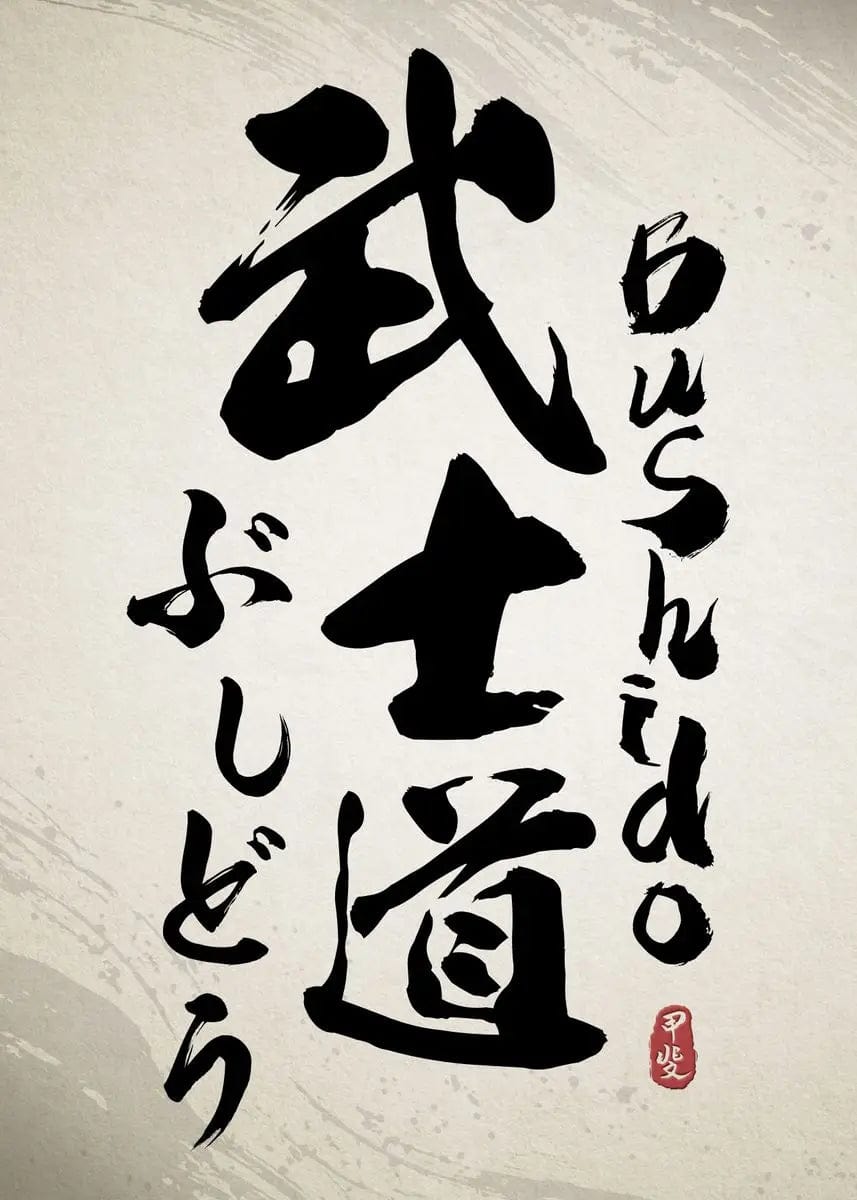 Bushido
武士道
ぶしどう
甲斐